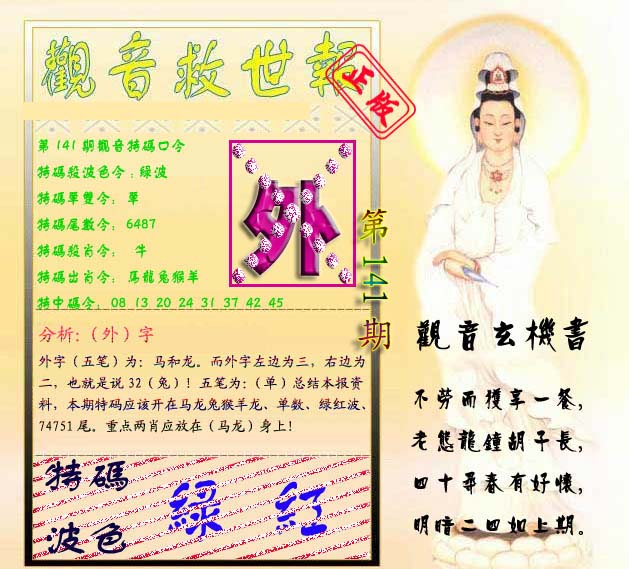 觀音救世報
正版
第141期觀音特碼口令
特碼殺波色令：綠波
特碼單雙令： 單
特碼尾數令： 6487
特碼殺肖令： 牛
特碼出肖令： 馬龍兔猴羊
特中碼令： 08 13 20 24 31 37 42 45
外
第141期
分析:（外）字
外字（五笔）为：马和龙。而外字左边为三，右边为
二，也就是说 32（兔）！五笔为:（单）总结本报资
料，本期特码应该开在马龙兔猴羊龙、单数、绿红波、
74751 尾。重点两肖应放在（马龙）身上！
特碼
波色
綠 紅
觀音玄機書
不勞而獲享一餐，
老態龍鐘胡子長，
四十尋春有好懷，
明暗二四如上期。